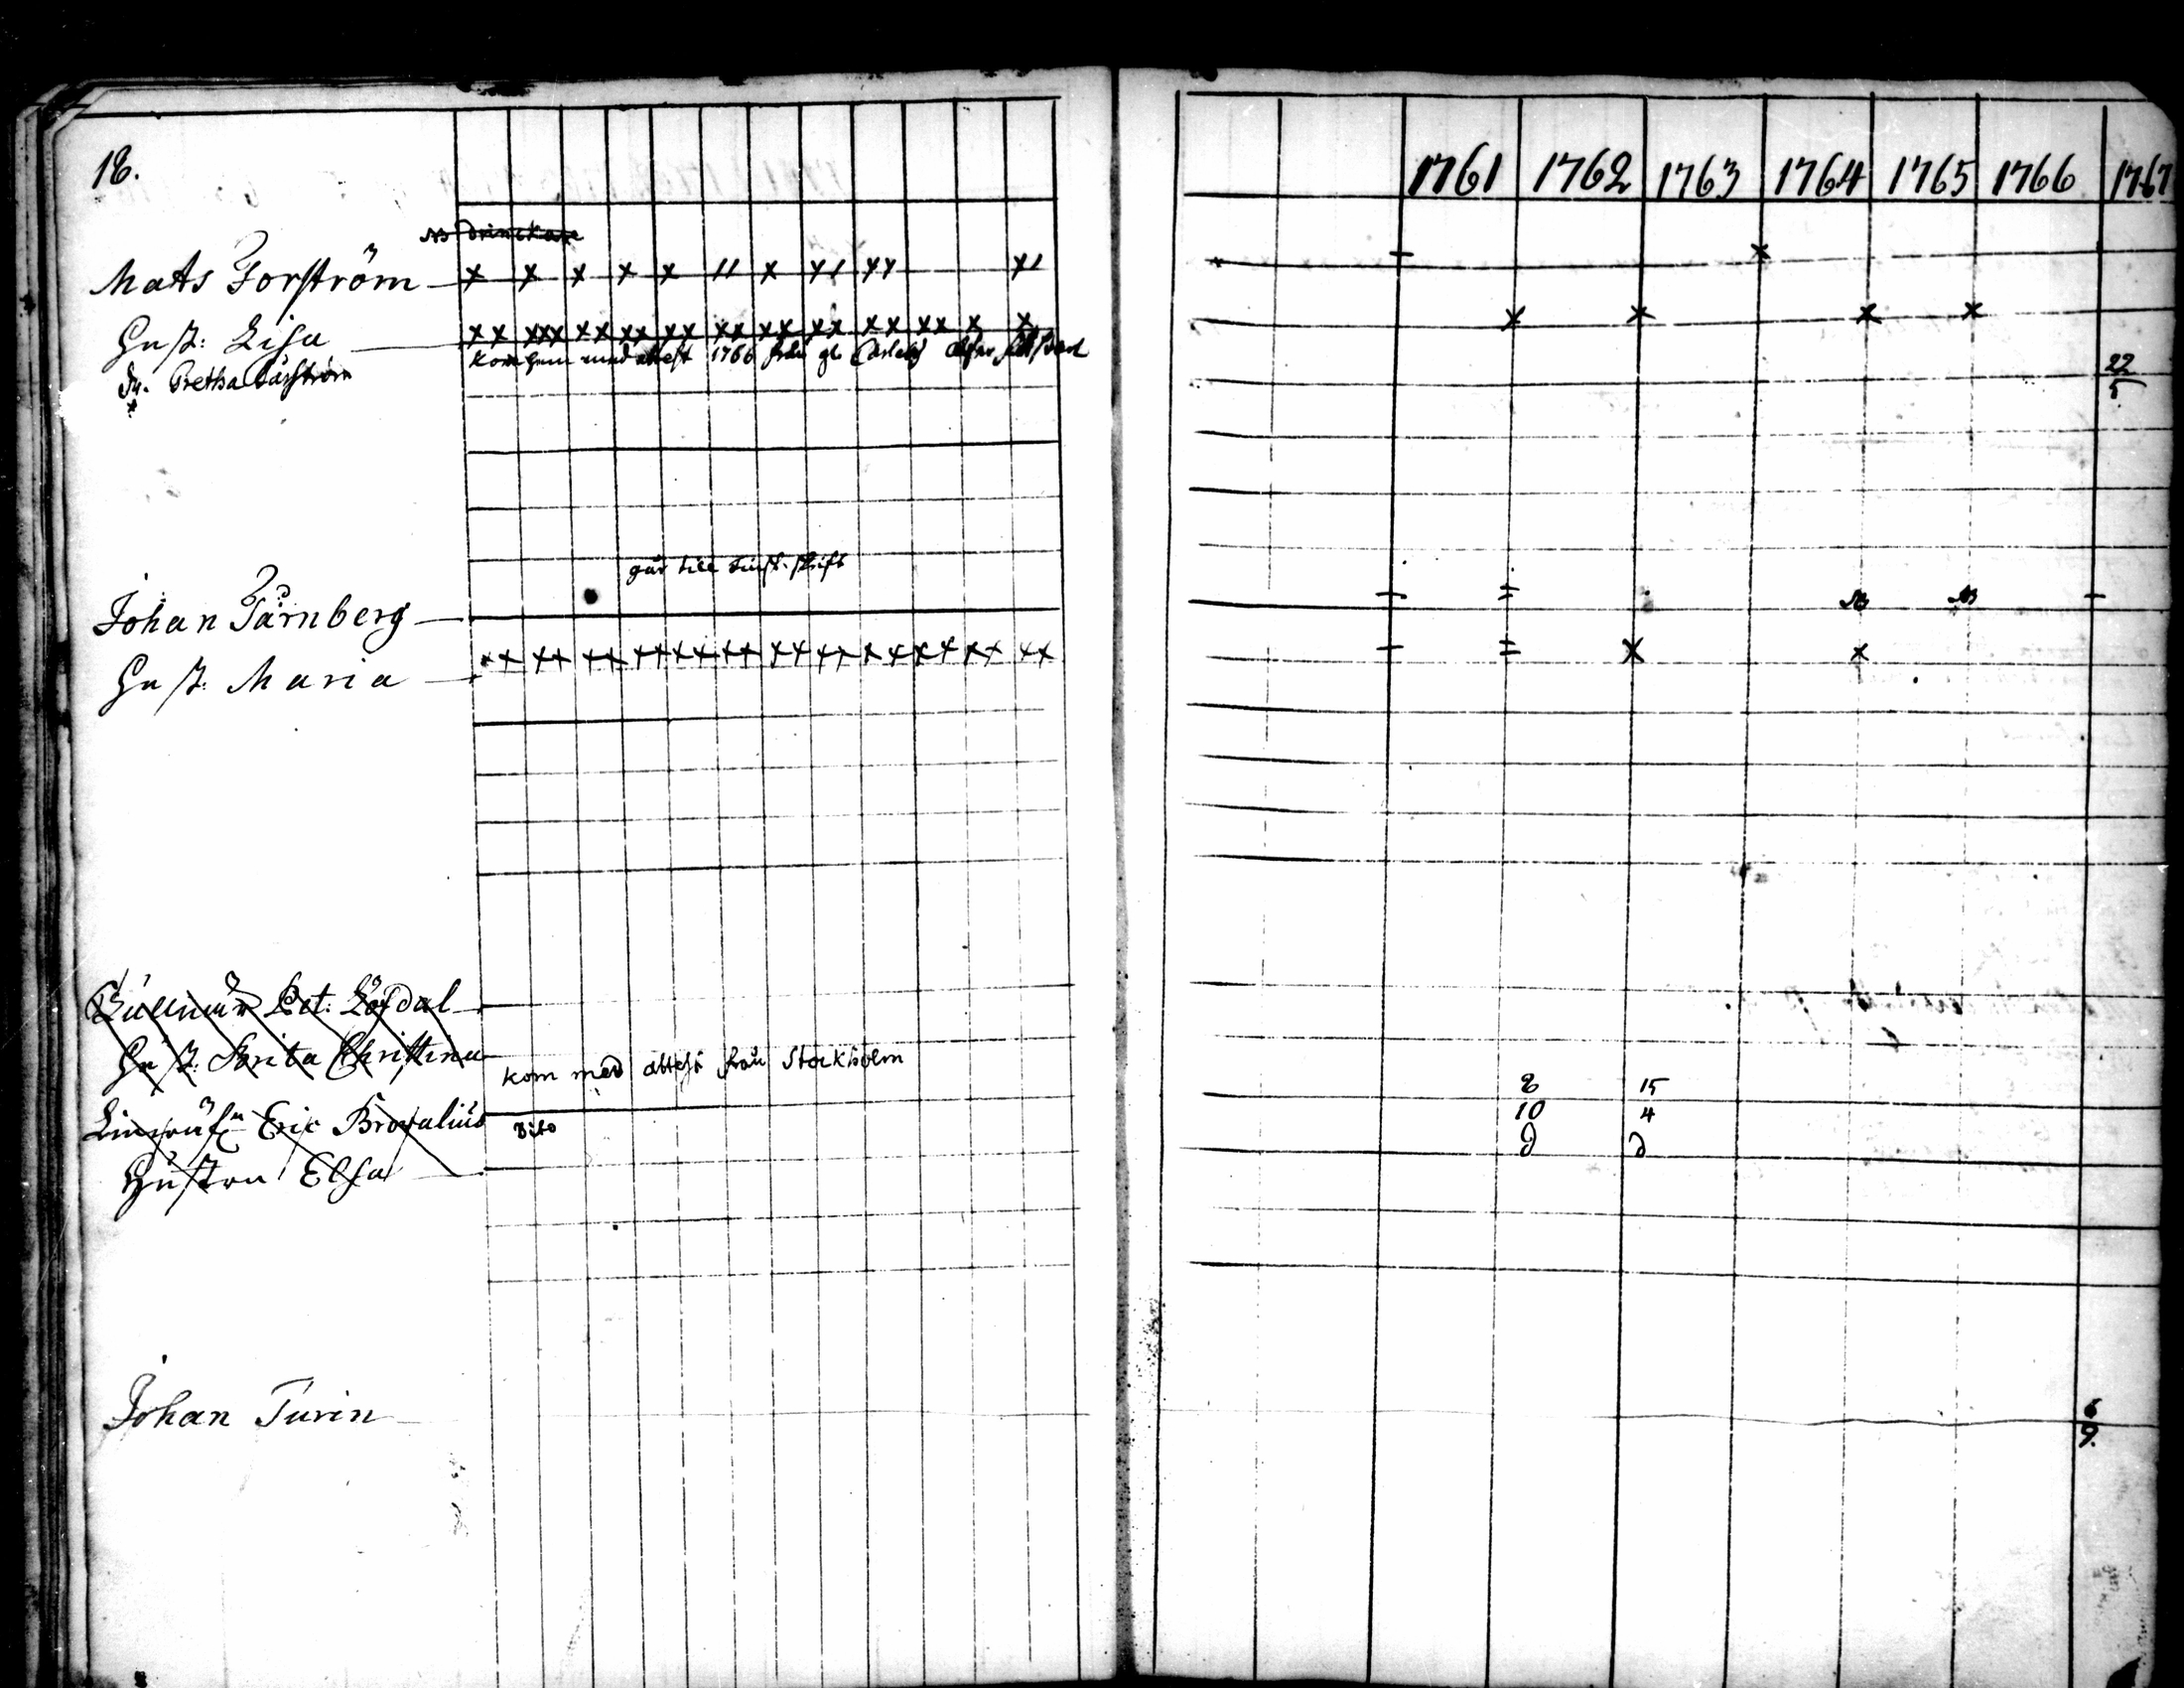 18.
1761 1762 1763 1764 1765 1766 1767
NB drinckare
Mats Forström x x x x x 11 x x1 xx x1
x
Hust: Lisa xx xxx xx xx xx xx xx xx xx xx x x
x x x x
kom hem med attest 1766 från gl Carleby
Pretha
22
5
går till
Johan Tärnberg
NB NB
Hust: Maria xx xx xx xx xx xx xx xx xx xx xx xx
x x
Pet: Löfdal
Hust: Brita Christina
kom med attest från Stockholm
8 15
10 4
Eric Brovalius dito
Hustru Elsa
Johan Turin
6
9.